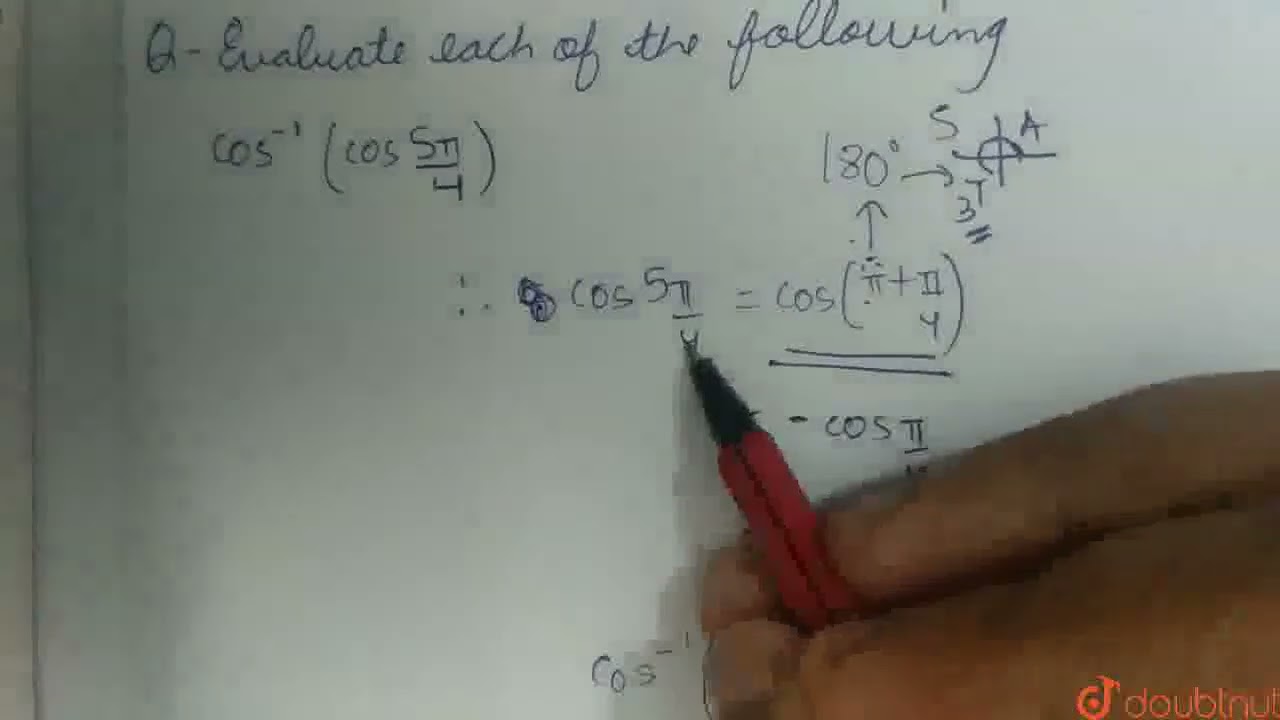 Q- Evaluate each of the following
cos⁻¹ (cos 5π/4)
180° → S A
T
3
∴ cos 5π/4 = cos(π + π/4)
- cos π
cos⁻¹ (
doubtnut